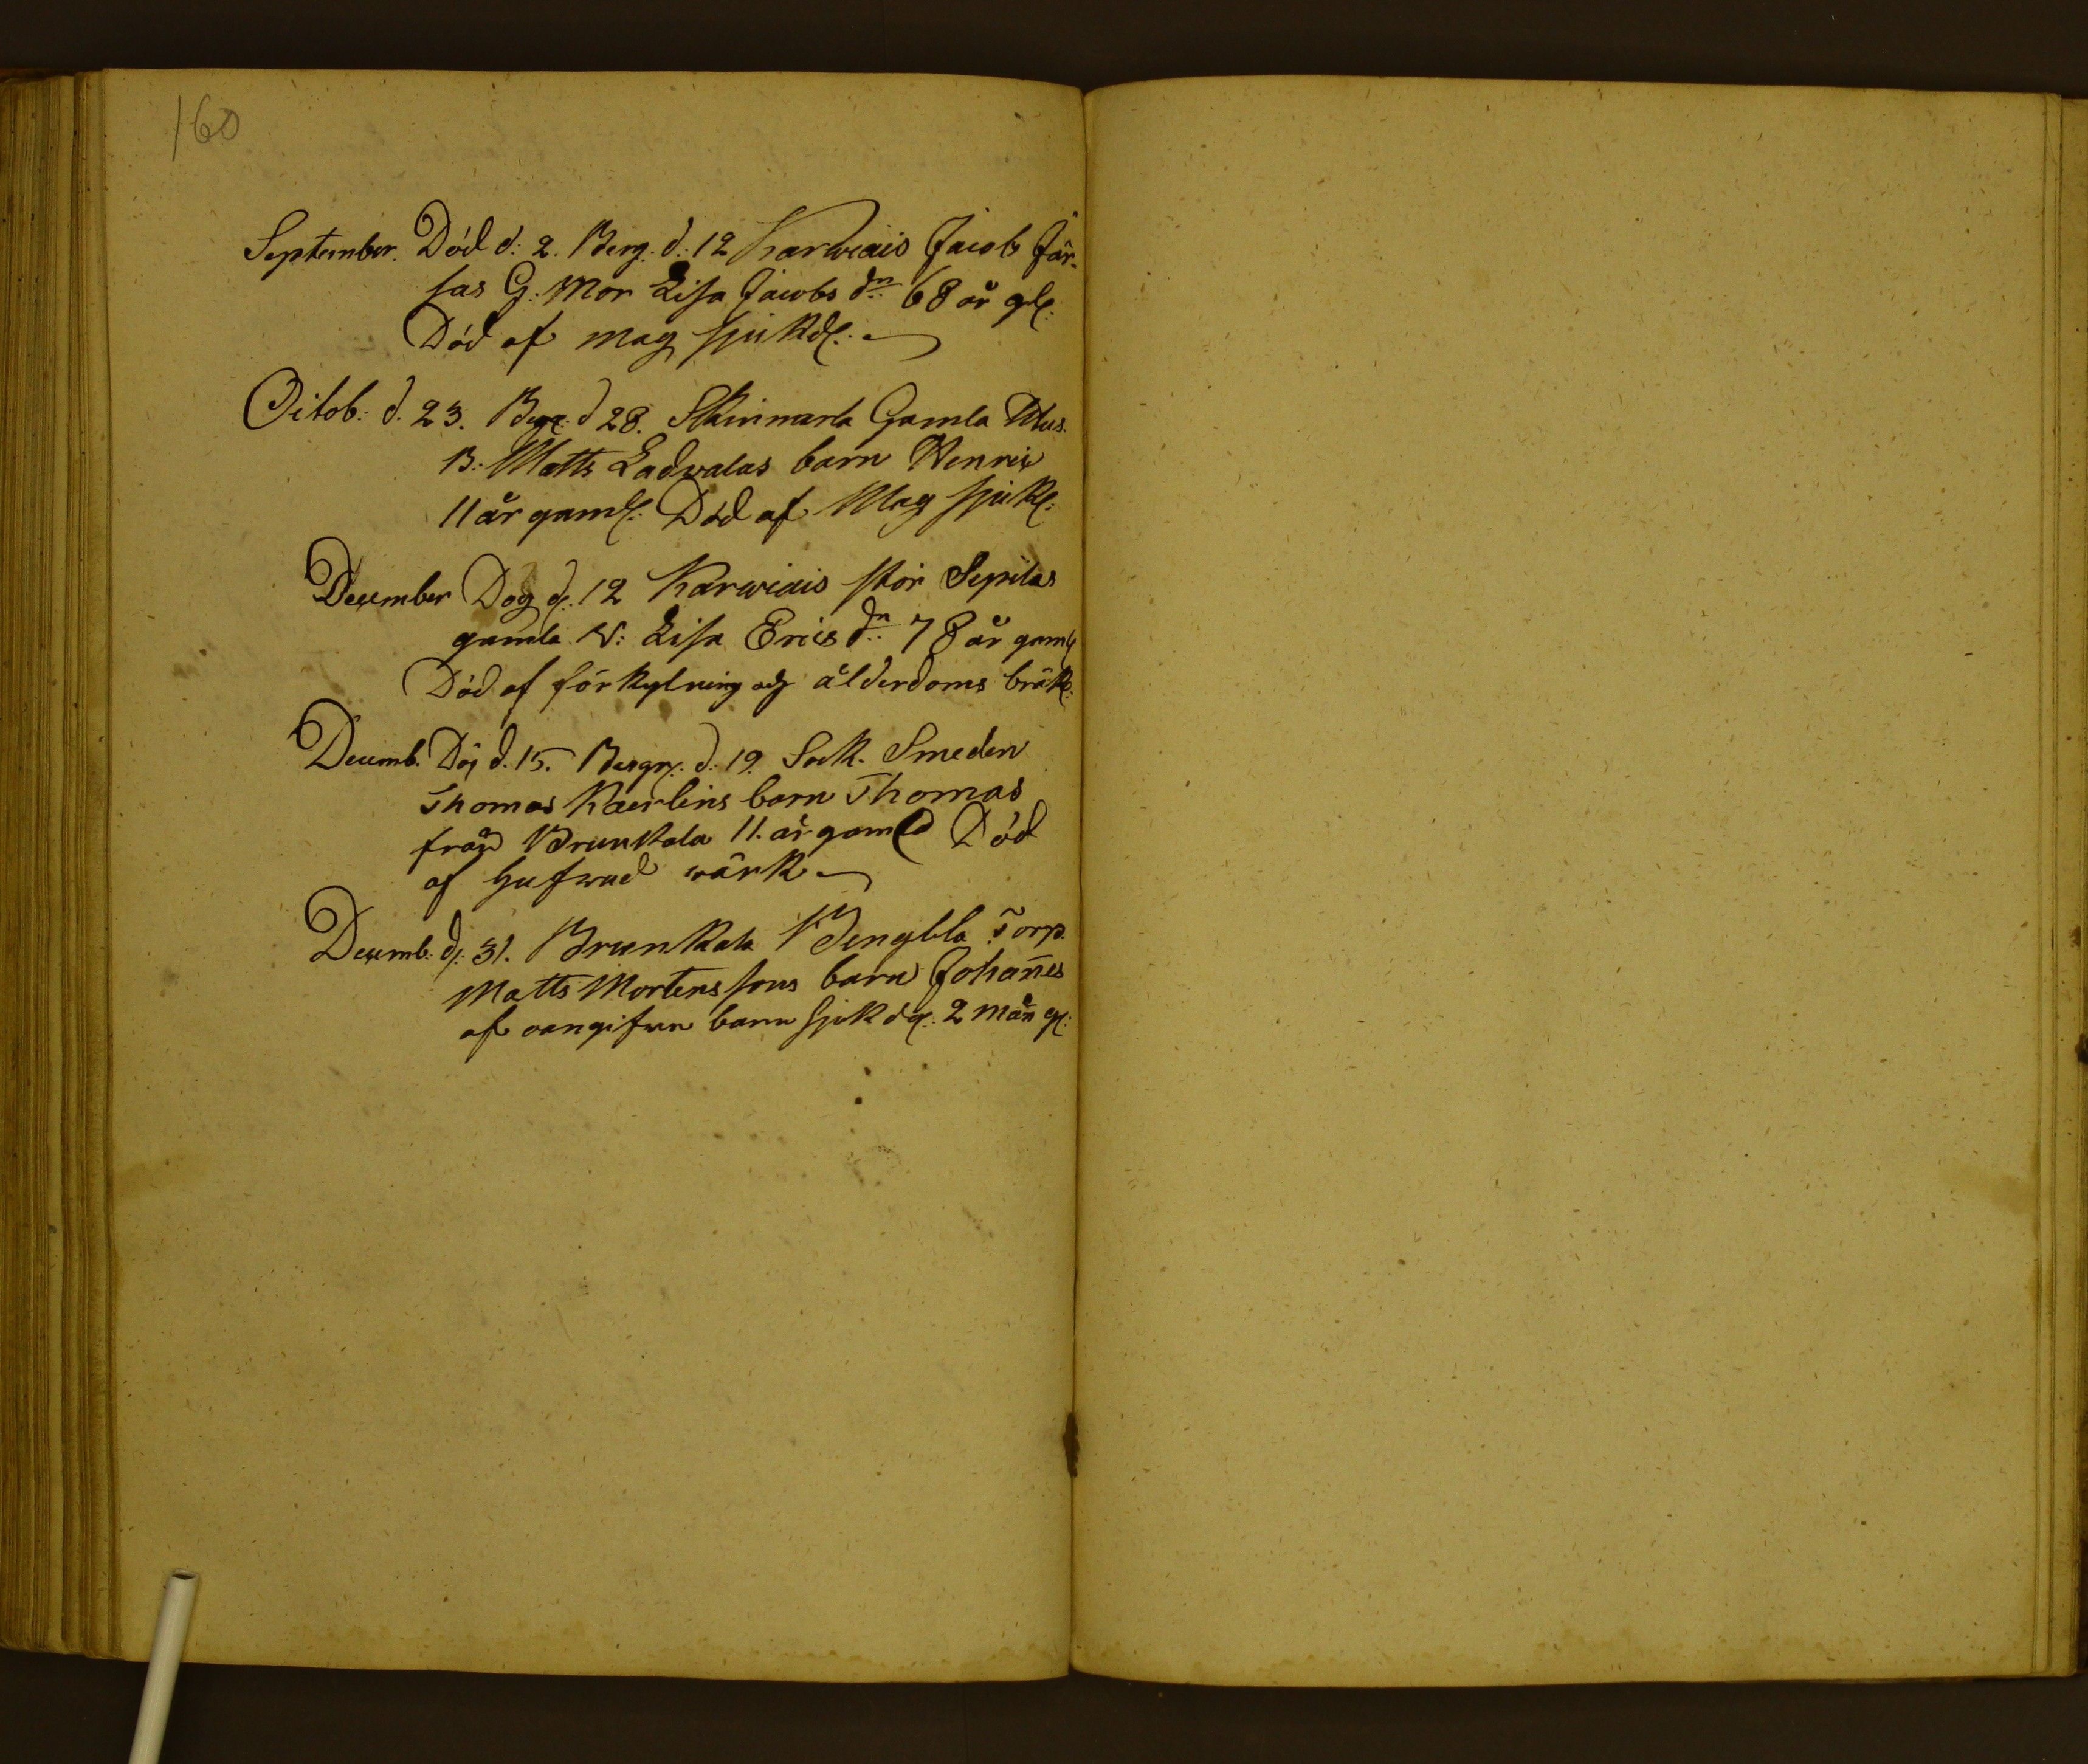 160
September. Död d: 2. Berg. d: 12 Karwiais Jacob Jär-
sas G: Mor Lisa Jacobs dr: 68 år gl:
Död af mag sjukd:
Octob: d. 23. Begr: d 28. Skinnarla Gamla Hus.
B: Matts Ladwalas barn Henric
11 år gaml: Död af Mag sjukl:
December Dog d: 12 Karwiais stor Sepilas
gamla V: Lisa Erics dr: 78 år gaml
Död af förkylning och ålderdoms bräkl:
Decemb. Dög d. 15. Begr: d: 19. Sock. Smeden
Thomas Kaerleins barn Thomas
från Brunkala 11. år gamld Död
af Hufwud wärk
Decemb: d: 31. Brunkala Bengtla Torp.
Matts Mortenssons barn Johan̄es
af oangifwn barn sjukdg: 2 mån gl: